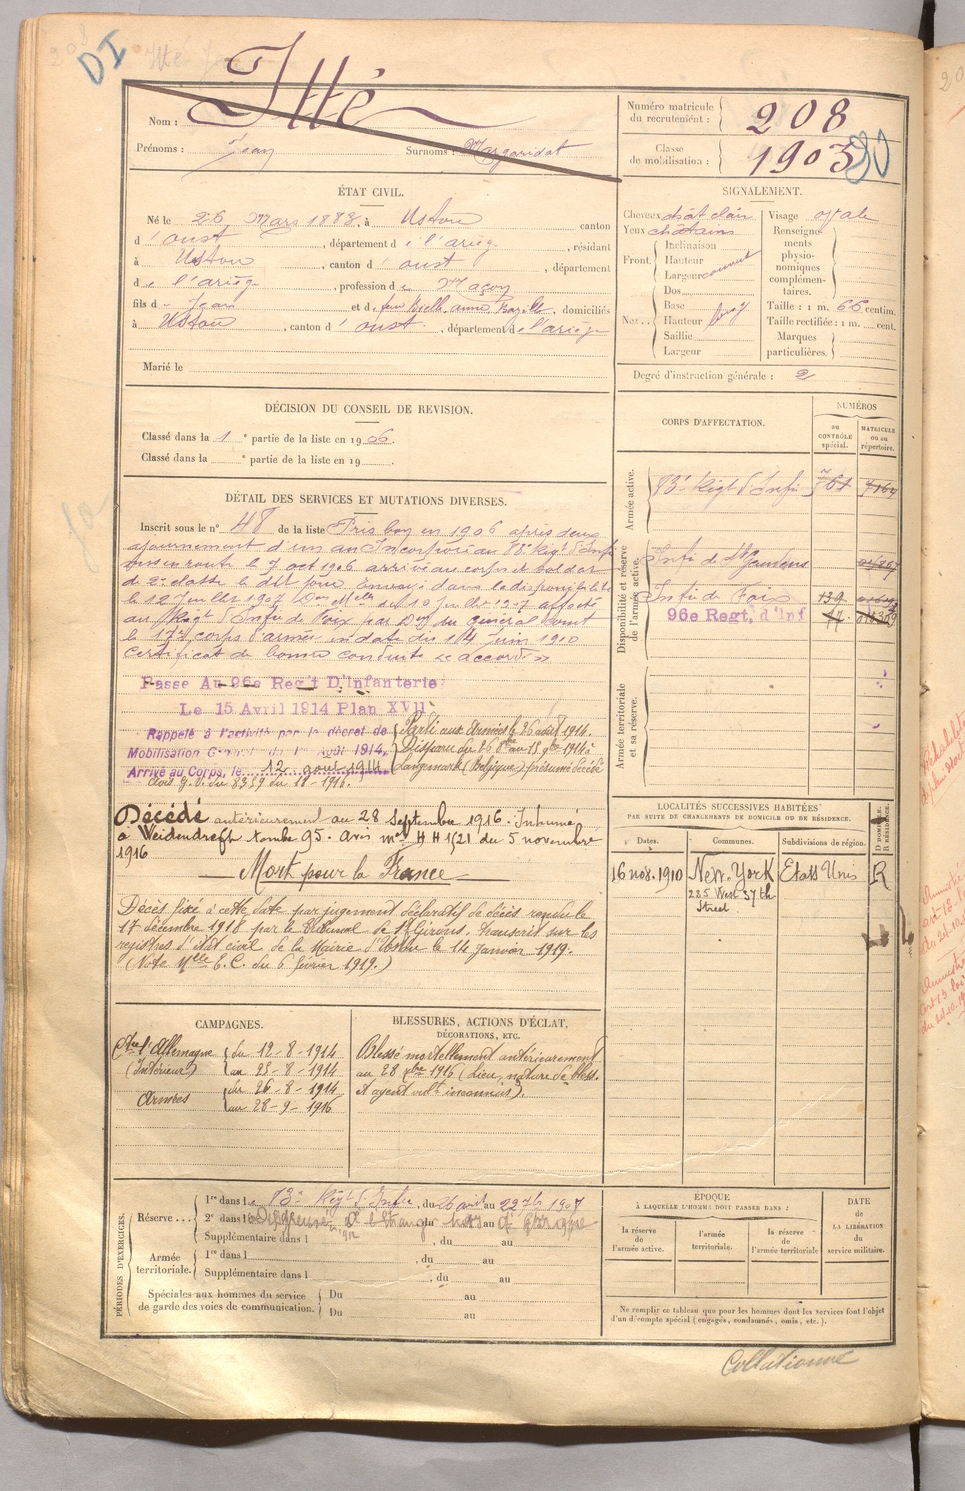 DI
Nom : Itté
Prénoms : Jean Surnoms : Margaridat
Numéro matricule du recrutement : 208
Classe de mobilisation : 1903
ÉTAT CIVIL.
Né le 26 Mars 1883, à Ustou canton
d'oust, département d e l'arièg, résidant
à Ustou, canton d'oust, département
d e l'arièg, profession d e Maçon
fils d e Jean et d e, domiciliés
à Ustou, canton d'oust, département de l'arièg
Marié le
SIGNALEMENT.
Cheveux chât clair
Yeux chatains
Front. Inclinaison
Hauteur
Largeur
Nez.. Dos
Base
Hauteur
Saillie
Largeur
Visage ovale
Renseignements physionomiques complémentaires.
Taille : 1 m. 66 centim.
Taille rectifiée : 1 m. cent.
Marques particulières.
Degré d'instruction générale : 2
DÉCISION DU CONSEIL DE REVISION.
Classé dans la 1e partie de la liste en 1906.
Classé dans la e partie de la liste en 19
DÉTAIL DES SERVICES ET MUTATIONS DIVERSES.
Inscrit sous le n° 48 de la liste Pris bon en 1906 après deux
ajournement d'un an Incorporé au 83e Régt d'Infie
mis en route le 7 oct 1906 arrivé au corps et soldat
de 2e classe le dit jour Envoyé dans la disponibilité
le 12 Juillet 1907 Don Melle du 10 Juillet 1907 affecté
au Régt d'Infie de Foix par Don du général comt
le 17e corps d'armée en date du 14 Juin 1910
Certificat de bonne conduite "accordé"
Passe Au 96e Reg't D'Infanterie
Le 15 Avril 1914 Plan XVII
Rappelé à l'activité par le décret de
Mobilisation Général du 1er Août 1914,
Arrivé au Corps, le 12 août 1914
Parti aux Armées le 26 août 1914.
Disparu du 26 8bre au 15 9bre 1914 à
Langemark (Belgique) présumé décédé
avis g.v. du 8359 du 18-1916.
Décédé antérieurement au 28 Septembre 1916. Inhumé
à Weidendreft tombe 95. Avis mel HH 1521 du 5 novembre
1916
Mort pour la France
Décès fixé à cette date par jugement déclaratif de décès rendu le
17 décembre 1918 par le Tribunal de St Girons, transcrit sur les
registres d'état civil de la Mairie d'Ustou le 14 Janvier 1919.
(Note Melle E.C. du 6 février 1919.)
CORPS D'AFFECTATION.
NUMÉROS
au CONTRÔLE spécial.
MATRICULE ou au répertoire.
Armée active.
83e Régt d'Infie
Disponibilité et réserve de l'armée active.
Infie de St Gaudens
Infie de Foix 139
96e Regt, d'Inf
Armée territoriale et sa réserve.
LOCALITÉS SUCCESSIVES HABITÉES
PAR SUITE DE CHANGEMENTS DE DOMICILE OU DE RÉSIDENCE.
Dates. Communes. Subdivisions de région. D DOMICILE. R RÉSIDENCE.
16 nov. 1910 New-York Etats Unis R
285 West 37 th
Street
CAMPAGNES.
Ctre l'Allemagne du 12-8-1914
(Intérieur) au 25-8-1914
Armées du 26-8-1914
au 28-9-1916
BLESSURES, ACTIONS D'ÉCLAT,
DÉCORATIONS, ETC.
Blessé mortellement antérieurement
au 28 7bre 1916 (Lieu, nature de bless.
et agent vult inconnus).
PÉRIODES D'EXERCICES.
Réserve... 1re dans le 83e Régt d'Infie, du 26 août au 22 7b 1907
2e dans l
Supplémentaire dans l, du au
Armée territoriale. 1re dans l, du au
Supplémentaire dans l, du au
Spéciales aux hommes du service de garde des voies de communication. Du au
Du au
ÉPOQUE
À LAQUELLE L'HOMME DOIT PASSER DANS :
la réserve de l'armée active.
l'armée territoriale.
la réserve de l'armée territoriale
DATE de LA LIBÉRATION du service militaire.
Ne remplir ce tableau que pour les hommes dont les services font l'objet
d'un décompte spécial (engagés, condamnés, omis, etc.).
Collationné